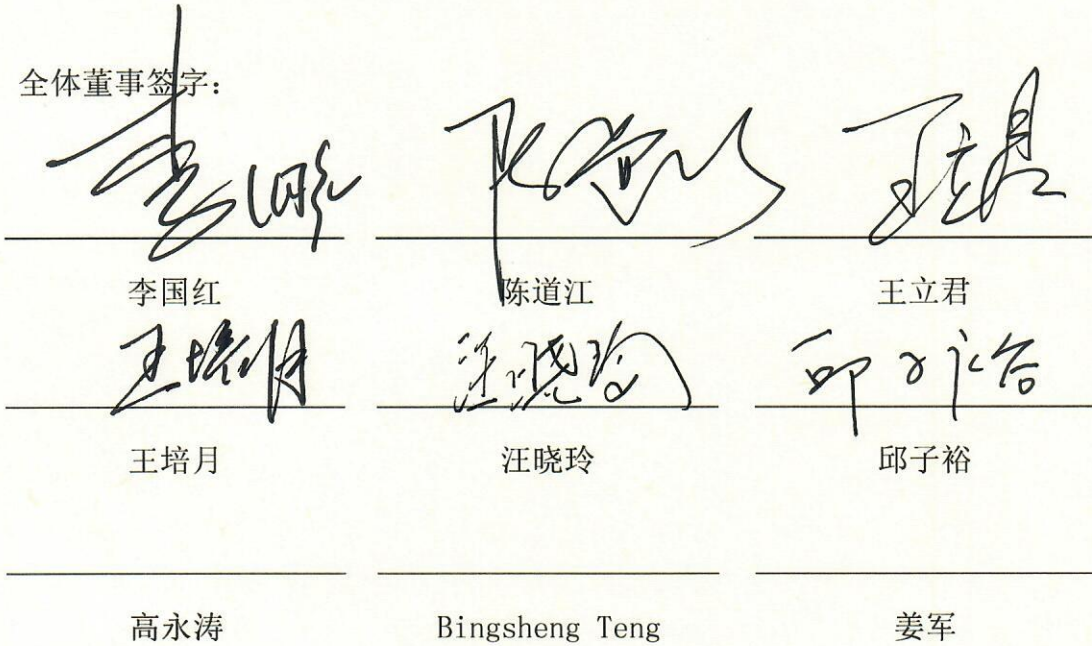 全体董事签字：
李国红 陈道江 王立君
王培月 汪晓玲 邱子裕
王培月 汪晓玲 邱子裕
高永涛 Bingsheng Teng 姜军